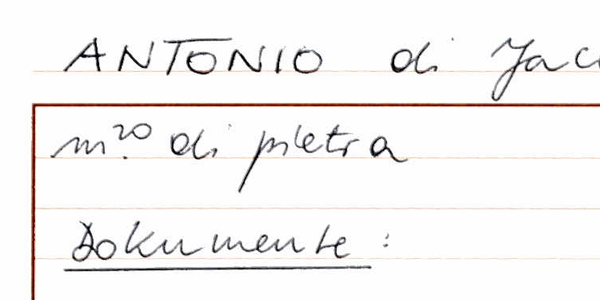 ANTONIO di Jac
m.ro di pietra
Dokumente: